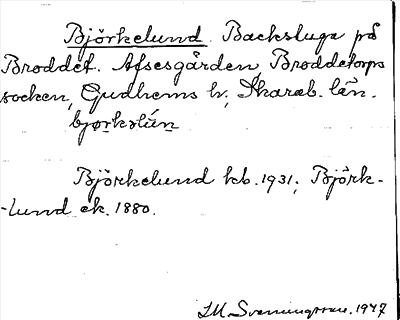 Björkelund. Backstuga på
Broddet. Afsesgården Broddetorps
socken, Gudhems h.; Skarab. län.
bjørkəlún
Björkelund kb. 1931; Björk-
-lund ek. 1880.
I.M. Svenungsson. 1947